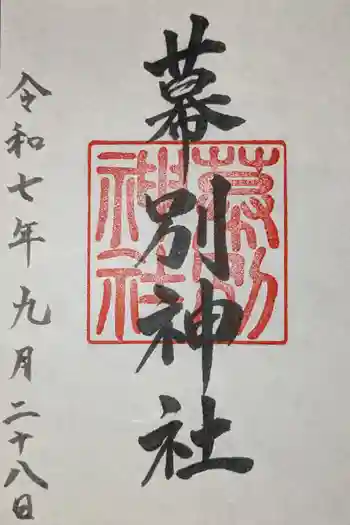 幕別神社
令和七年九月二十八日
幕別
神社